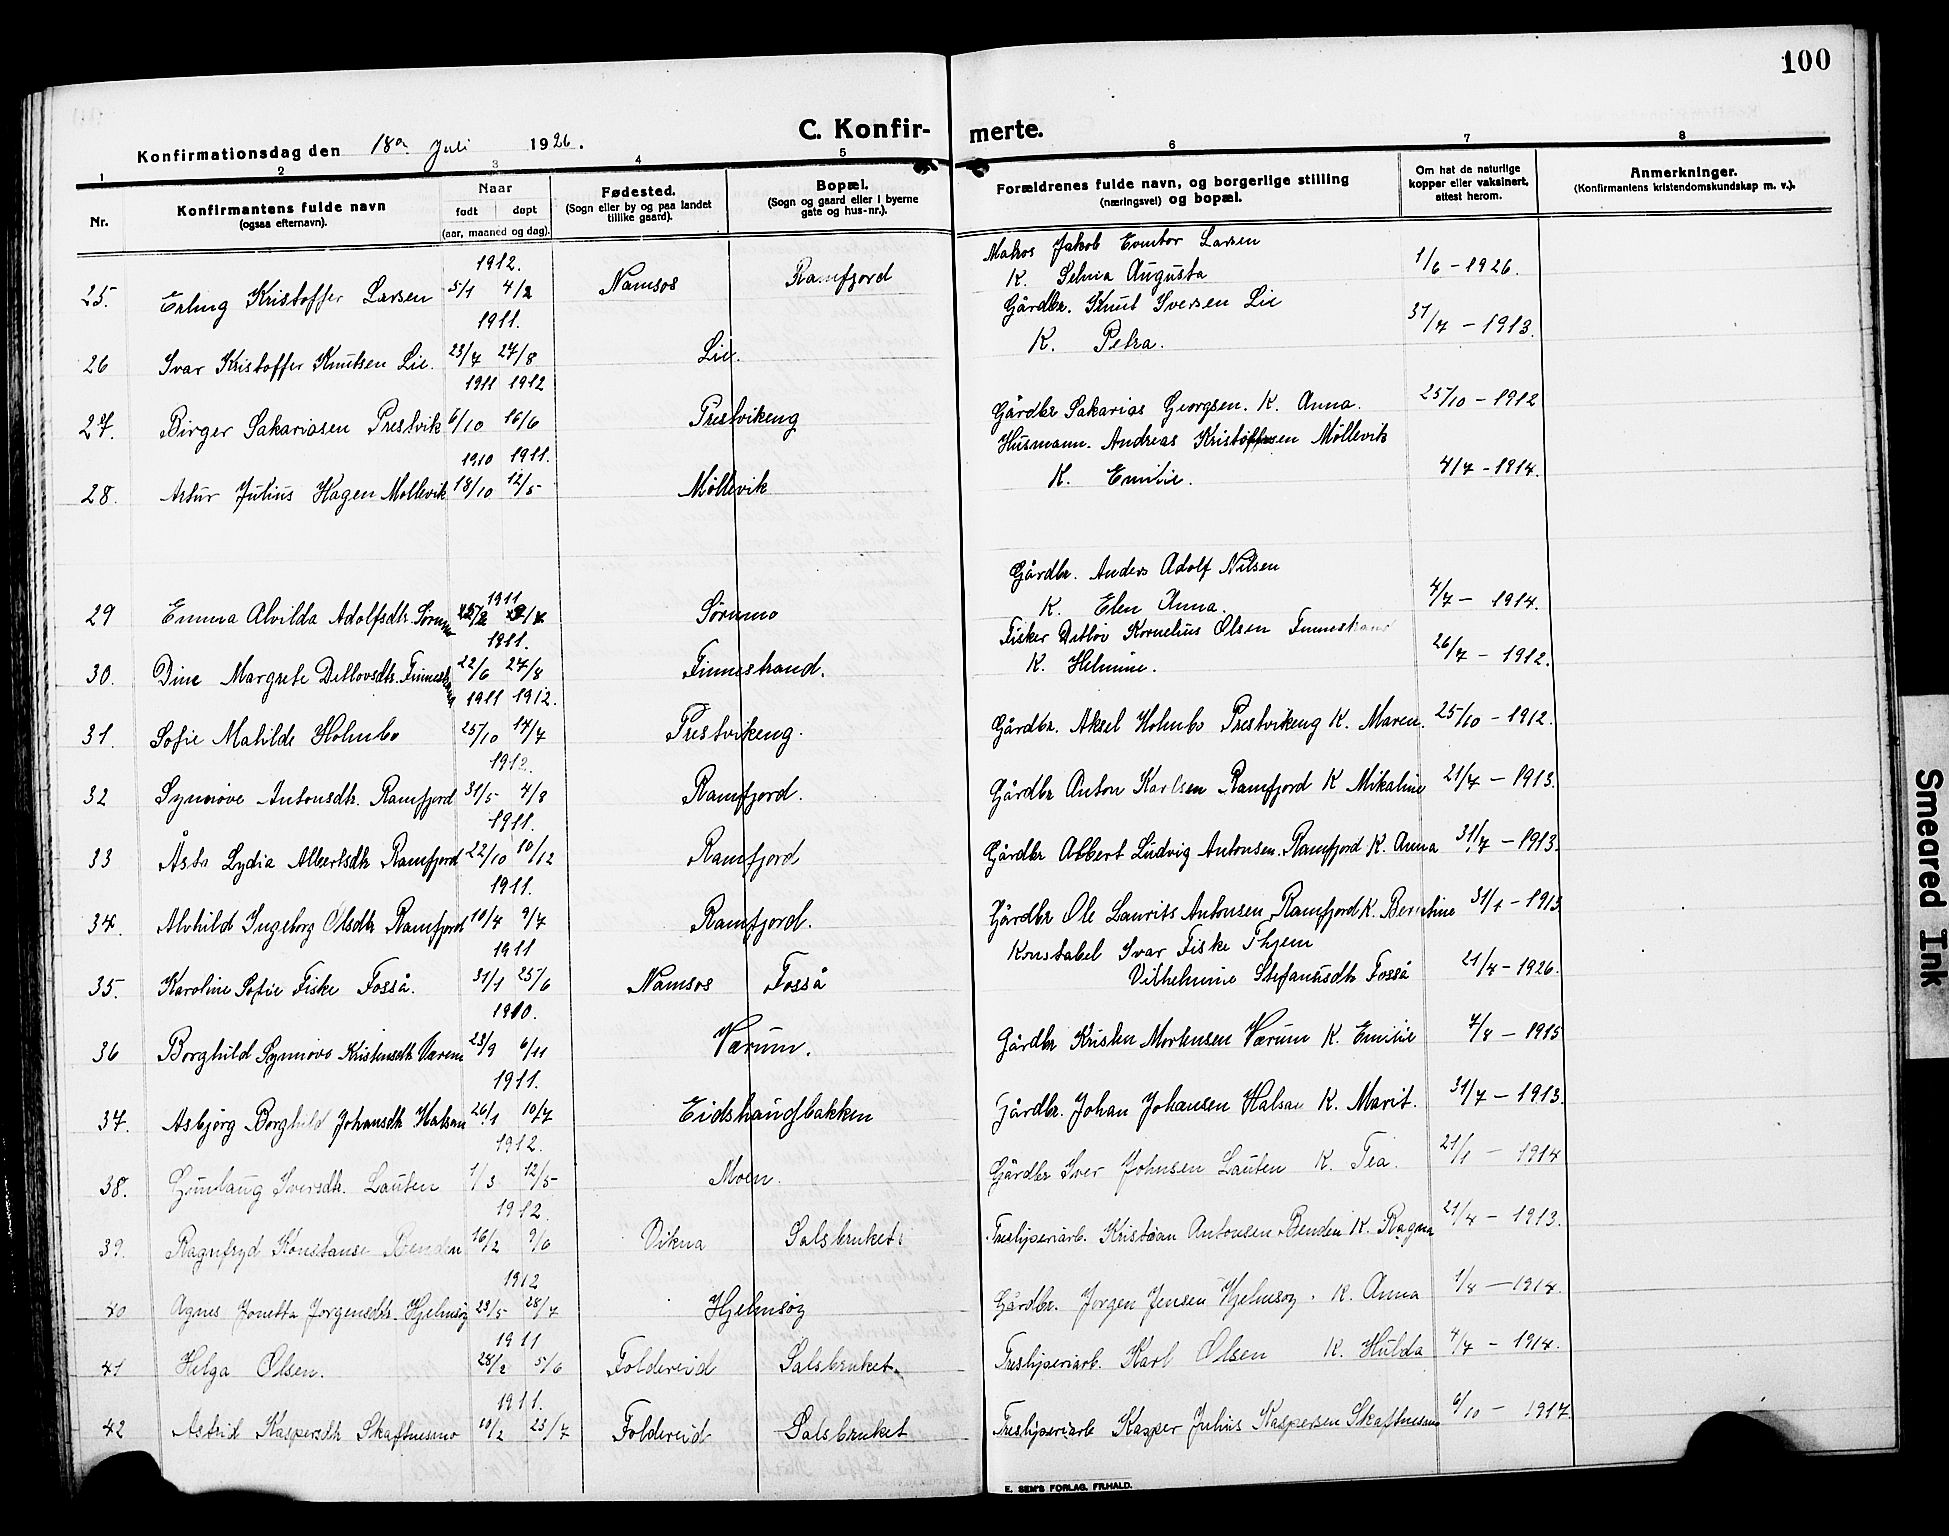 100
C. Konfir- merte.
Konfirmationsdag den 18de Juli 1926.
1 2 3 4 5 6 7 8
Nr.
Konfirmantens fulde navn
(ogsaa efternavn).
Naar
født døpt
(aar, maaned og dag).
Fødested.
(Sogn eller by og paa landet
tillike gaard).
Bopæl.
(Sogn og gaard eller i byerne
gate og hus-nr.).
Forældrenes fulde navn, og borgerlige stilling
(næringsvei) og bopæl.
Om hat de naturlige
kopper eller vaksinert,
attest herom.
Anmerkninger.
(Konfirmantens kristendomskundskap m. v.).
1912. Matros Jakob Evintor Larsen
25. Erling Kristoffer Larsen 5/1 4/2 Namsos Ramfjord K. Selma Augusta 1/6 - 1926.
1911. Gårdbr. Knut Iversen Lie
26 Ivar Kristoffer Knutsen Lie. 23/7 27/8 Lie. K. Petra. 31/7 - 1913.
1911 1912
27. Birger Sakariasen Prestvik 6/10 16/6 Prestvikeng Gårdbr Sakarias Georgsen. K. Anna. 25/10 - 1912
1910 1911. Husmann. Andreas Kristoffersen Møllevik
28. Artur Julius Hagen Møllevik 18/10 12/5 Møllevik K. Emilie. 4/7 - 1914.
1911 Gårdbr. Anders Adolf Nilsen
29 Emma Alvilda Adolfsdtr. Sørumo Sørumo K. Elen Anna. 4/7 - 1914.
1911. Fisker Detlov Kornelius Olsen Finnestrand
30. Dine Margrete Detlovsdtr. Finnestrand 22/6 27/8 Finnestrand. K. Helmine. 26/7 - 1912.
1911 1912.
31. Sofie Matilde Holmbo 25/10 14/7 Prestvikeng. Gårdbr. Aksel Holmbo Prestvikeng K. Maren. 25/10 - 1912.
1912.
32 Synnøve Antonsdtr. Ramfjord 31/5 4/8 Ramfjord. Gårdbr Anton Karlsen Ramfjord K Mikaline 21/7 - 1913.
1911.
33 Åsta Lydia Albertsdtr Ramfjord 22/10 10/12 Ramfjord Gårdbr Albert Ludvig Antonsen. Ramfjord K. Anna 31/7 - 1913.
1911.
34. Alvhild Ingeborg Olsdtr Ramfjord 10/4 9/7 Ramfjord. Gårdbr Ole Laurits Antonsen, Ramfjord K. Berntine 31/7 - 1913
1911 Konstabel Ivar Fiske Thjem
35. Karoline Sofie Fiske Fosså. 31/1 25/6 Namsos Fosså Vilhelmine Stefanusdtr Fosså 21/4 - 1926.
1910.
36 Borghild Synnøve Kristensdtr Værum 23/9 6/11 Værum. Gårdbr Kristen Mortensen Værum K. Emilie 7/8 - 1915
1911.
37. Asbjørg Borghild Johansdtr Halsan 26/1 10/7 Eidshaugbakken Gårdbr. Johan Johansen Halsan K. Marit. 31/7 - 1913.
1912.
38. Gunlaug Iversdtr. Lauten 1/3 12/5 Moen. Gårdbr Iver Johnsen Lauten K. Tea. 21/1 - 1914
1912.
39. Ragnfryd Konstanse Benden 16/2 9/6 Vikna Salsbruket Tresliperiarb. Kristian Antonsen Benden K. Ragna 21/4 - 1913.
1912
40 Agnes Jonetta Jørgensdtr. Hjelmsøy 23/5 28/7 Hjelmsøy Gårdbr. Jørgen Jensen Hjelmsøy. K. Anna 1/8 - 1914.
1911
41 Helga Olsen. 28/2 5/6 Foldereid Salsbruket. Tresliperiarb. Karl Olsen K. Hulda 4/7 - 1914.
1911.
42 Astrid Kaspersdtr Skaftnesmo 20/2 23/7 Foldereid Salsbruket Tresliperiarb Kasper Julius Kaspersen Skaftnesmo 6/10 - 1917.
E. SEM'S FORLAG, FR.HALD.
Smeared Ink